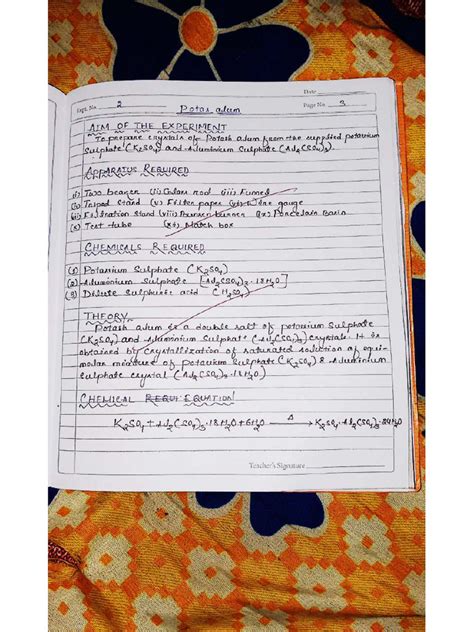 Date
Expt. No. 2 Potas alum Page No. 3
AIM OF THE EXPERIMENT
To prepare crystals of Potash alum from the supplied potassium
Sulphate (K2SO4) and Aluminium Sulphate (Al2(SO4)3).
APPARATUS REQUIRED
(i) Two beaker (ii) Glass rod (iii) Funnel
(iv) Tripod Stand (v) Filter paper (vi) Wire gauge
(vii) Filtration Stand (viii) Bunsen burner (ix) Porcelain Basin
(x) Test tube (xi) Match box
CHEMICALS REQUIRED
(1) Potassium Sulphate (K2SO4)
(2) Aluminium Sulphate [Al2(SO4)3.18H2O]
(3) Dilute Sulphuric acid (H2SO4)
THEORY
Potash alum is a double salt of potassium Sulphate
(K2SO4) and Aluminium Sulphate (Al2(SO4)3) crystals. It is
obtained by crystallization of saturated solution of equi-
molar mixture of potassium Sulphate (K2SO4) & Aluminium
Sulphate crystal (Al2(SO4)3.18H2O)
CHEMICAL REQUI EQUATION
K2SO4 + Al2(SO4)3.18H2O + 6H2O Δ→ K2SO4.Al2(SO4)3.24H2O
Teacher's Signature